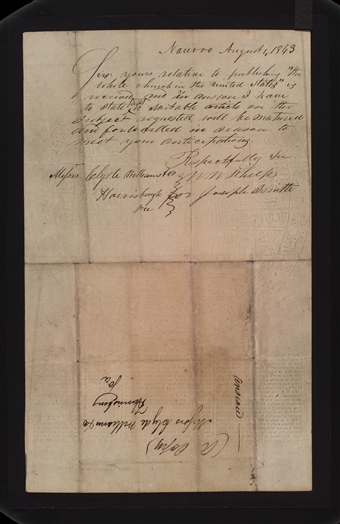 Nauvoo August 1, 1843
Sir, yours relative to publishing "the
whole church in the United States" is
received and in answer I have
to state that a suitable article on the
subject requested will be matured
and forwarded in season to
meet your anticipations
Respectfully Sir
Messrs Clyde Williams & Co W W Phelps
Harrisburgh for Joseph Smith
Pa
(A Copy)
Messrs Clyde Williams & Co
Pa